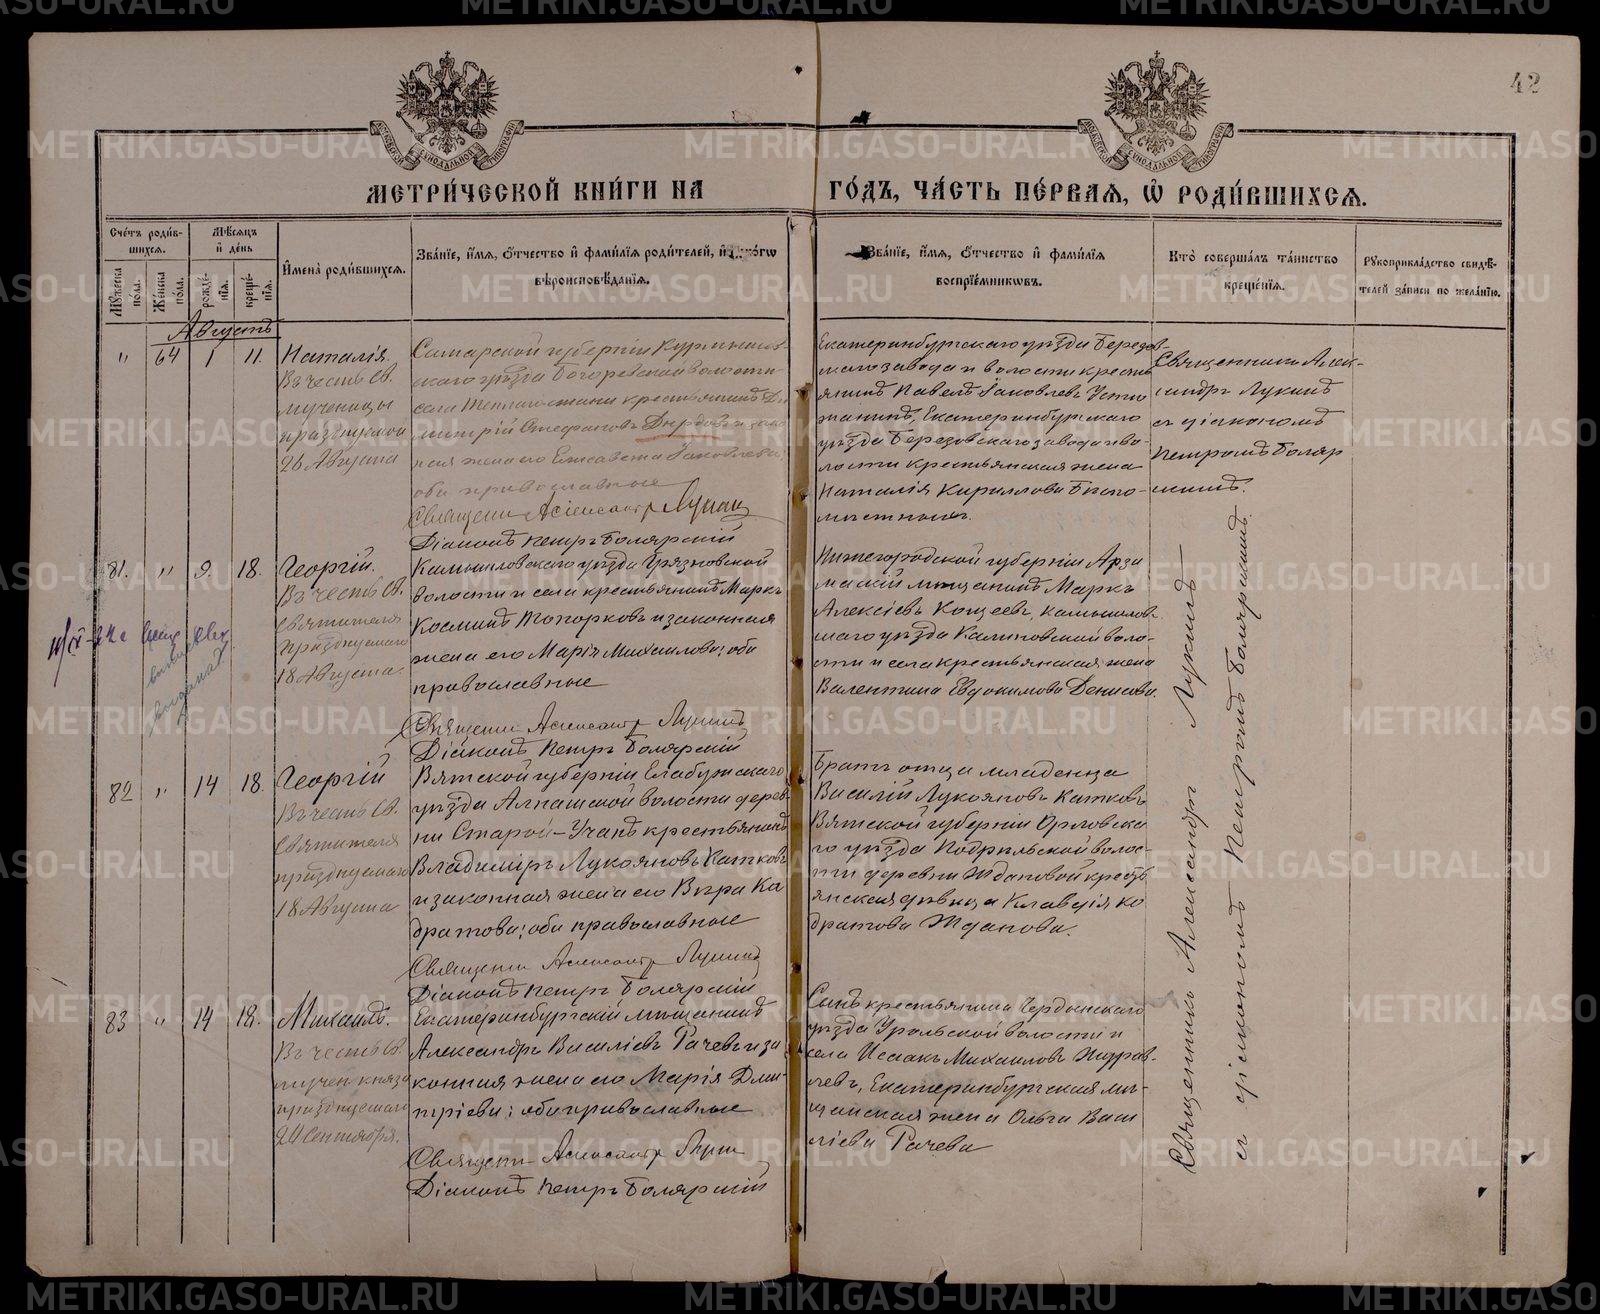 42
МЕТРИ́ЧЕСКОЙ КНИ́ГИ НА ГО́ДЪ, ЧА́СТЬ ПЕ́РВАЯ, Ѡ РОДИ́ВШИХСЯ.
Сче́тъ роди́в-
шихся.
Му́жеска пола.
Же́нска пола.
Мѣ́сяцъ
и де́нь
рожде́-
нія.
креще́-
нія.
И҆мена̀ роди́вшихся.
Зва́ніе, и҆́мя, ѻ҆́тчество и҆ фами́лія роди́телей, и҆ како́гѡ
вѣроисповѣ́данія.
Зва́ніе, и҆́мя, ѻ҆́тчество и҆ фами́лія
воспріе́мниковъ.
Кто̀ соверша́лъ та́инство
креще́нія.
Рукоприкла́дство свидѣ́-
телей за́писи по жела́нію.
Августъ
" 64 1 11.
Наталія
Въ честь Св.
мученицы
празднуемой
26 Августа
Самарской губерніи
скаго уѣзда Богоревской волости
села Теплаго стана крестьянинъ Ди
митрій Стефановъ и закон
ная жена его Елисавета Іаковлева;
оба православные
Священ. Александръ Лукин
Діаконъ Петръ Боярскій
Екатеринбургскаго уѣзда Березов-
скаго завода и волости крестья
янинъ Павелъ Іаковлевъ Устю
жанинъ, Екатеринбургскаго
уѣзда Березовскаго завода и во-
лости крестьянская жена
Наталія Кириллова
Священникъ Алек-
сандръ Лукинъ
съ діакономъ
Петромъ Бояр
скимъ.
81. " 9. 18.
Георгій.
Въ честь Св.
Святителя
празднуемаго
18 Августа.
Камышловскаго уѣзда Грязновской
волости и села крестьянинъ Маркъ
Косминъ Топорковъ и законная
жена его Марія Михаилова; оба
православные
Священ. Александръ Лукинъ
Діаконъ Петръ Боярскій
Нижегородской губерніи Арза
маскій мѣщанинъ Маркъ
Алексіевъ Кощеевъ, Камышлов-
скаго уѣзда Калиновской воло-
сти и села крестьянская жена
Валентина Евдокимова Денисова.
82 " 14 18.
Георгій
Въ честь Св.
Святителя
празднуемаго
18 Августа
Вятской губерніи Елабужскаго
уѣзда Алнашской волости дерев-
ни Старой-Учанъ крестьянинъ
Владиміръ Лукояновъ Катковъ
и законная жена его Вѣра Ка
дратова; оба православные
Священ. Александръ Лукинъ
Діаконъ Петръ Боярскій
Братъ отца младенца
Василій Лукояновъ Катковъ
Вятской губерніи Орловска
го уѣзда Подрѣльской волос-
ти деревни Ждановой кресть
янская дѣвица Клавдія Ко
дратова Жданова.
83 " 14 18.
Михаилъ.
Въ честь Св.
мучен. князя
празднуемаго
20 Сентября.
Екатеринбургскій мѣщанинъ
Александръ Василіевъ Рачевъ и за
конная жена его Марія Дми-
тріева; оба православные
Священ. Александръ Лукин
Діаконъ Петръ Боярскій
Сынъ крестьянина Чердынскаго
уѣзда Урольской волости и
села Исаакъ Михаиловъ Журав-
левъ, Екатеринбургская мѣ-
щанская жена Ольга Васи
ліева Рачева
Священникъ Александръ Лукинъ
съ діакономъ Петромъ Боярскимъ.
METRIKI.GASO-URAL.RU